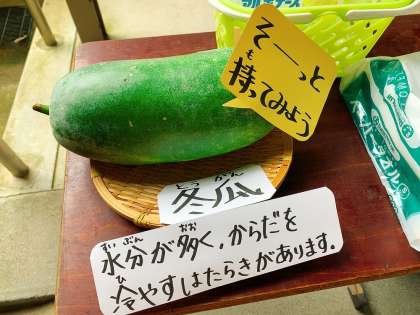 そーっと
持ってみよう
も
とうがん
冬瓜
すいぶん おお
水分が多く、からだを
ひ
冷やすはたらきがあります。